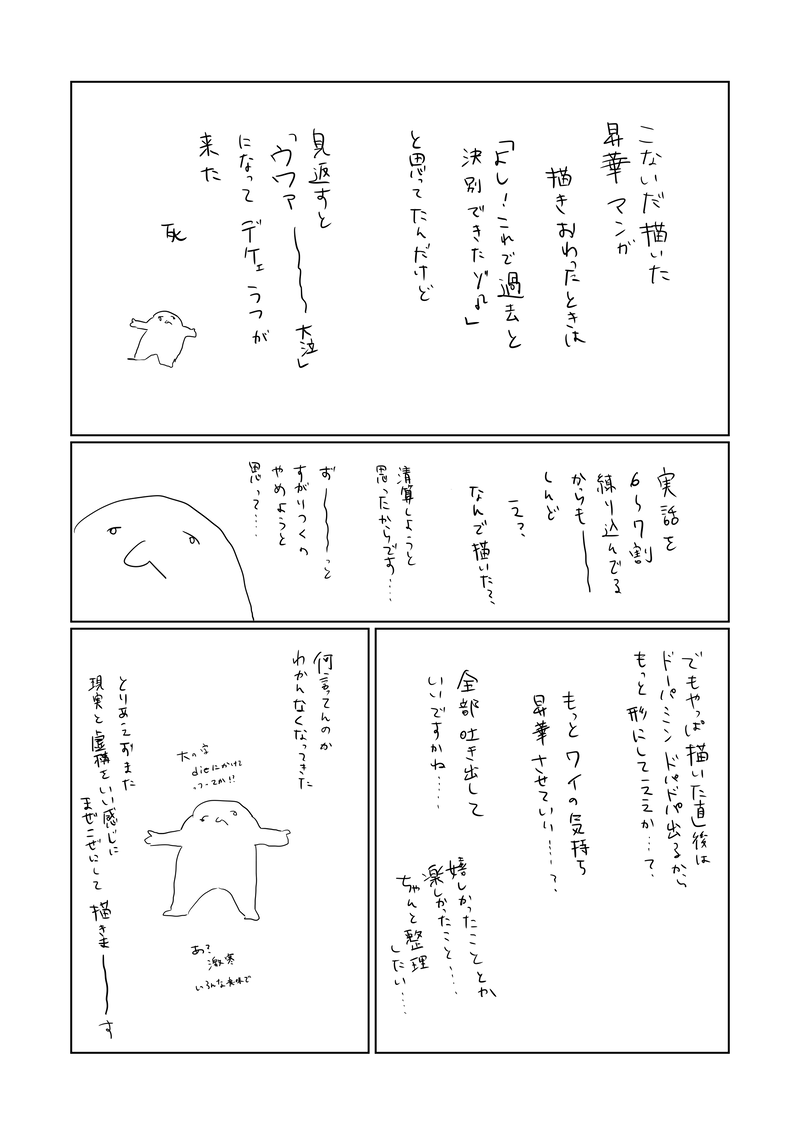 こないだ描いた
昇華マンガ
描きおわったときは
「よし!これで過去と
決別できたゾ♫」
と思ってたんだけど
見返すと
「ウワァ――大泣」
になって デケェうつが
来た
死
実話を
6〜7割
練り込んでる
からも――
しんど
え?
なんで描いた?
清算しようと
思ったからです….
お――っと
すがりつくの
やめようと
思って….
でもやっぱ描いた直後は
ドーパミンドパドパ出るから
もっと形にしてええか…て.
もっとワイの気持ち
昇華させていい…?
全部吐き出して
いいですかね….
嬉しかったこととか
楽しかったこと….
ちゃんと整理
したい….
何言ってんのか
わかんなくなってきた
大の字
dieにかけて
っつーてか!!
あ?
激寒
いろんな意味で
とりあえずまた
現実と虚構をいい感じに
まぜこぜにして 描きま――す